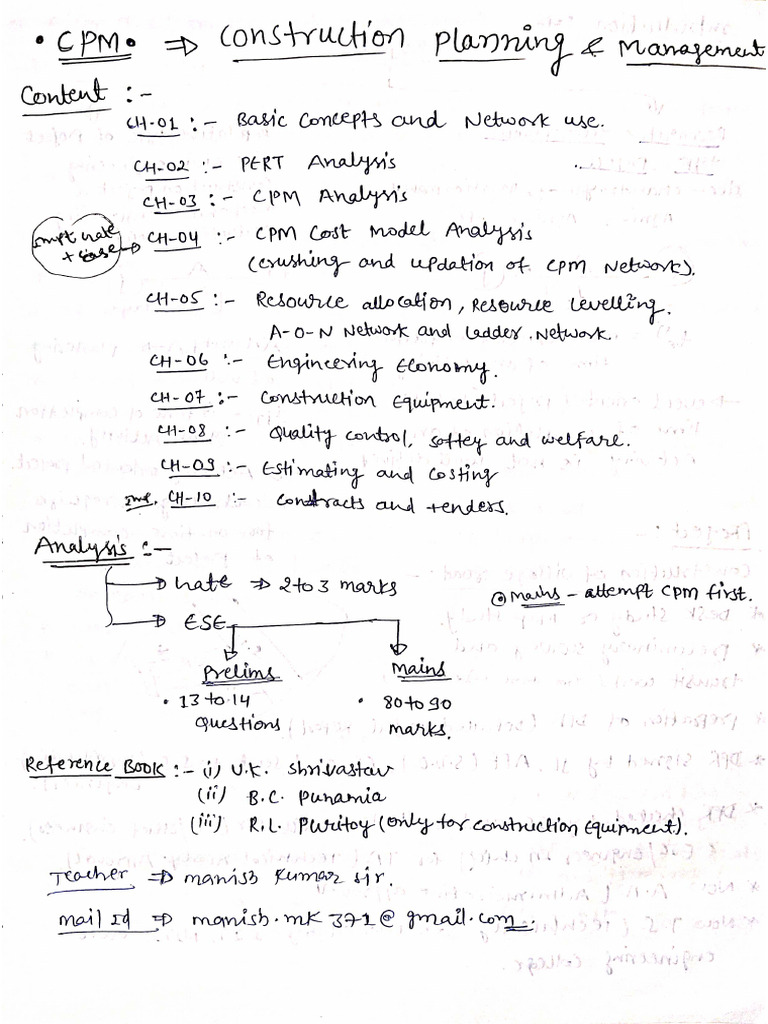 • CPM • ⇒ Construction Planning & Management
Content :-
CH-01 :- Basic Concepts and Network use.
CH-02 :- PERT Analysis
CH-03 :- CPM Analysis
CH-04 :- CPM Cost Model Analysis
(Crushing and updation of CPM Network).
CH-05 :- Resource allocation, Resource Levelling.
A-O-N Network and Ladder Network.
CH-06 :- Engineering Economy.
CH-07 :- Construction Equipment.
CH-08 :- Quality control, softey and welfare.
CH-09 :- Estimating and Costing
CH-10 :- contracts and tenders.
Analysis :-
→ hate ⇒ 2 to 3 marks
⊙ mains - attempt CPM first.
→ ESE
Prelims Mains
• 13 to 14 • 80 to 90
Questions marks.
Reference Book :- (i) U.K. Shrivastav
(ii) B.C. Punamia
(iii) R.L. Puritoy (only for construction Equipment).
Teacher ⇒ manish kumar sir.
mail Id ⇒ manish.mk371@gmail.com.